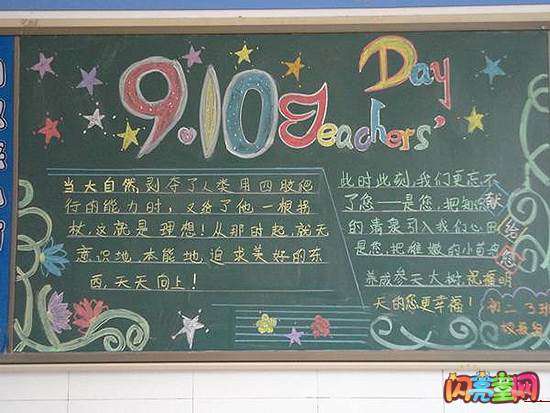 9.10 Teachers' Day
当大自然剥夺了人类用四肢爬
行的能力时，又给了他一根拐
杖，这就是理想！从那时起，就无
意识地、本能地追求美好的东
西，天天向上！
此时此刻，我们更忘不
了您——是您，把知识
的清泉引入我们心田
是您，把稚嫩的小苗
养成参天大树，祝福明
天的您更幸福！
献给您
初二3班
闪亮童网